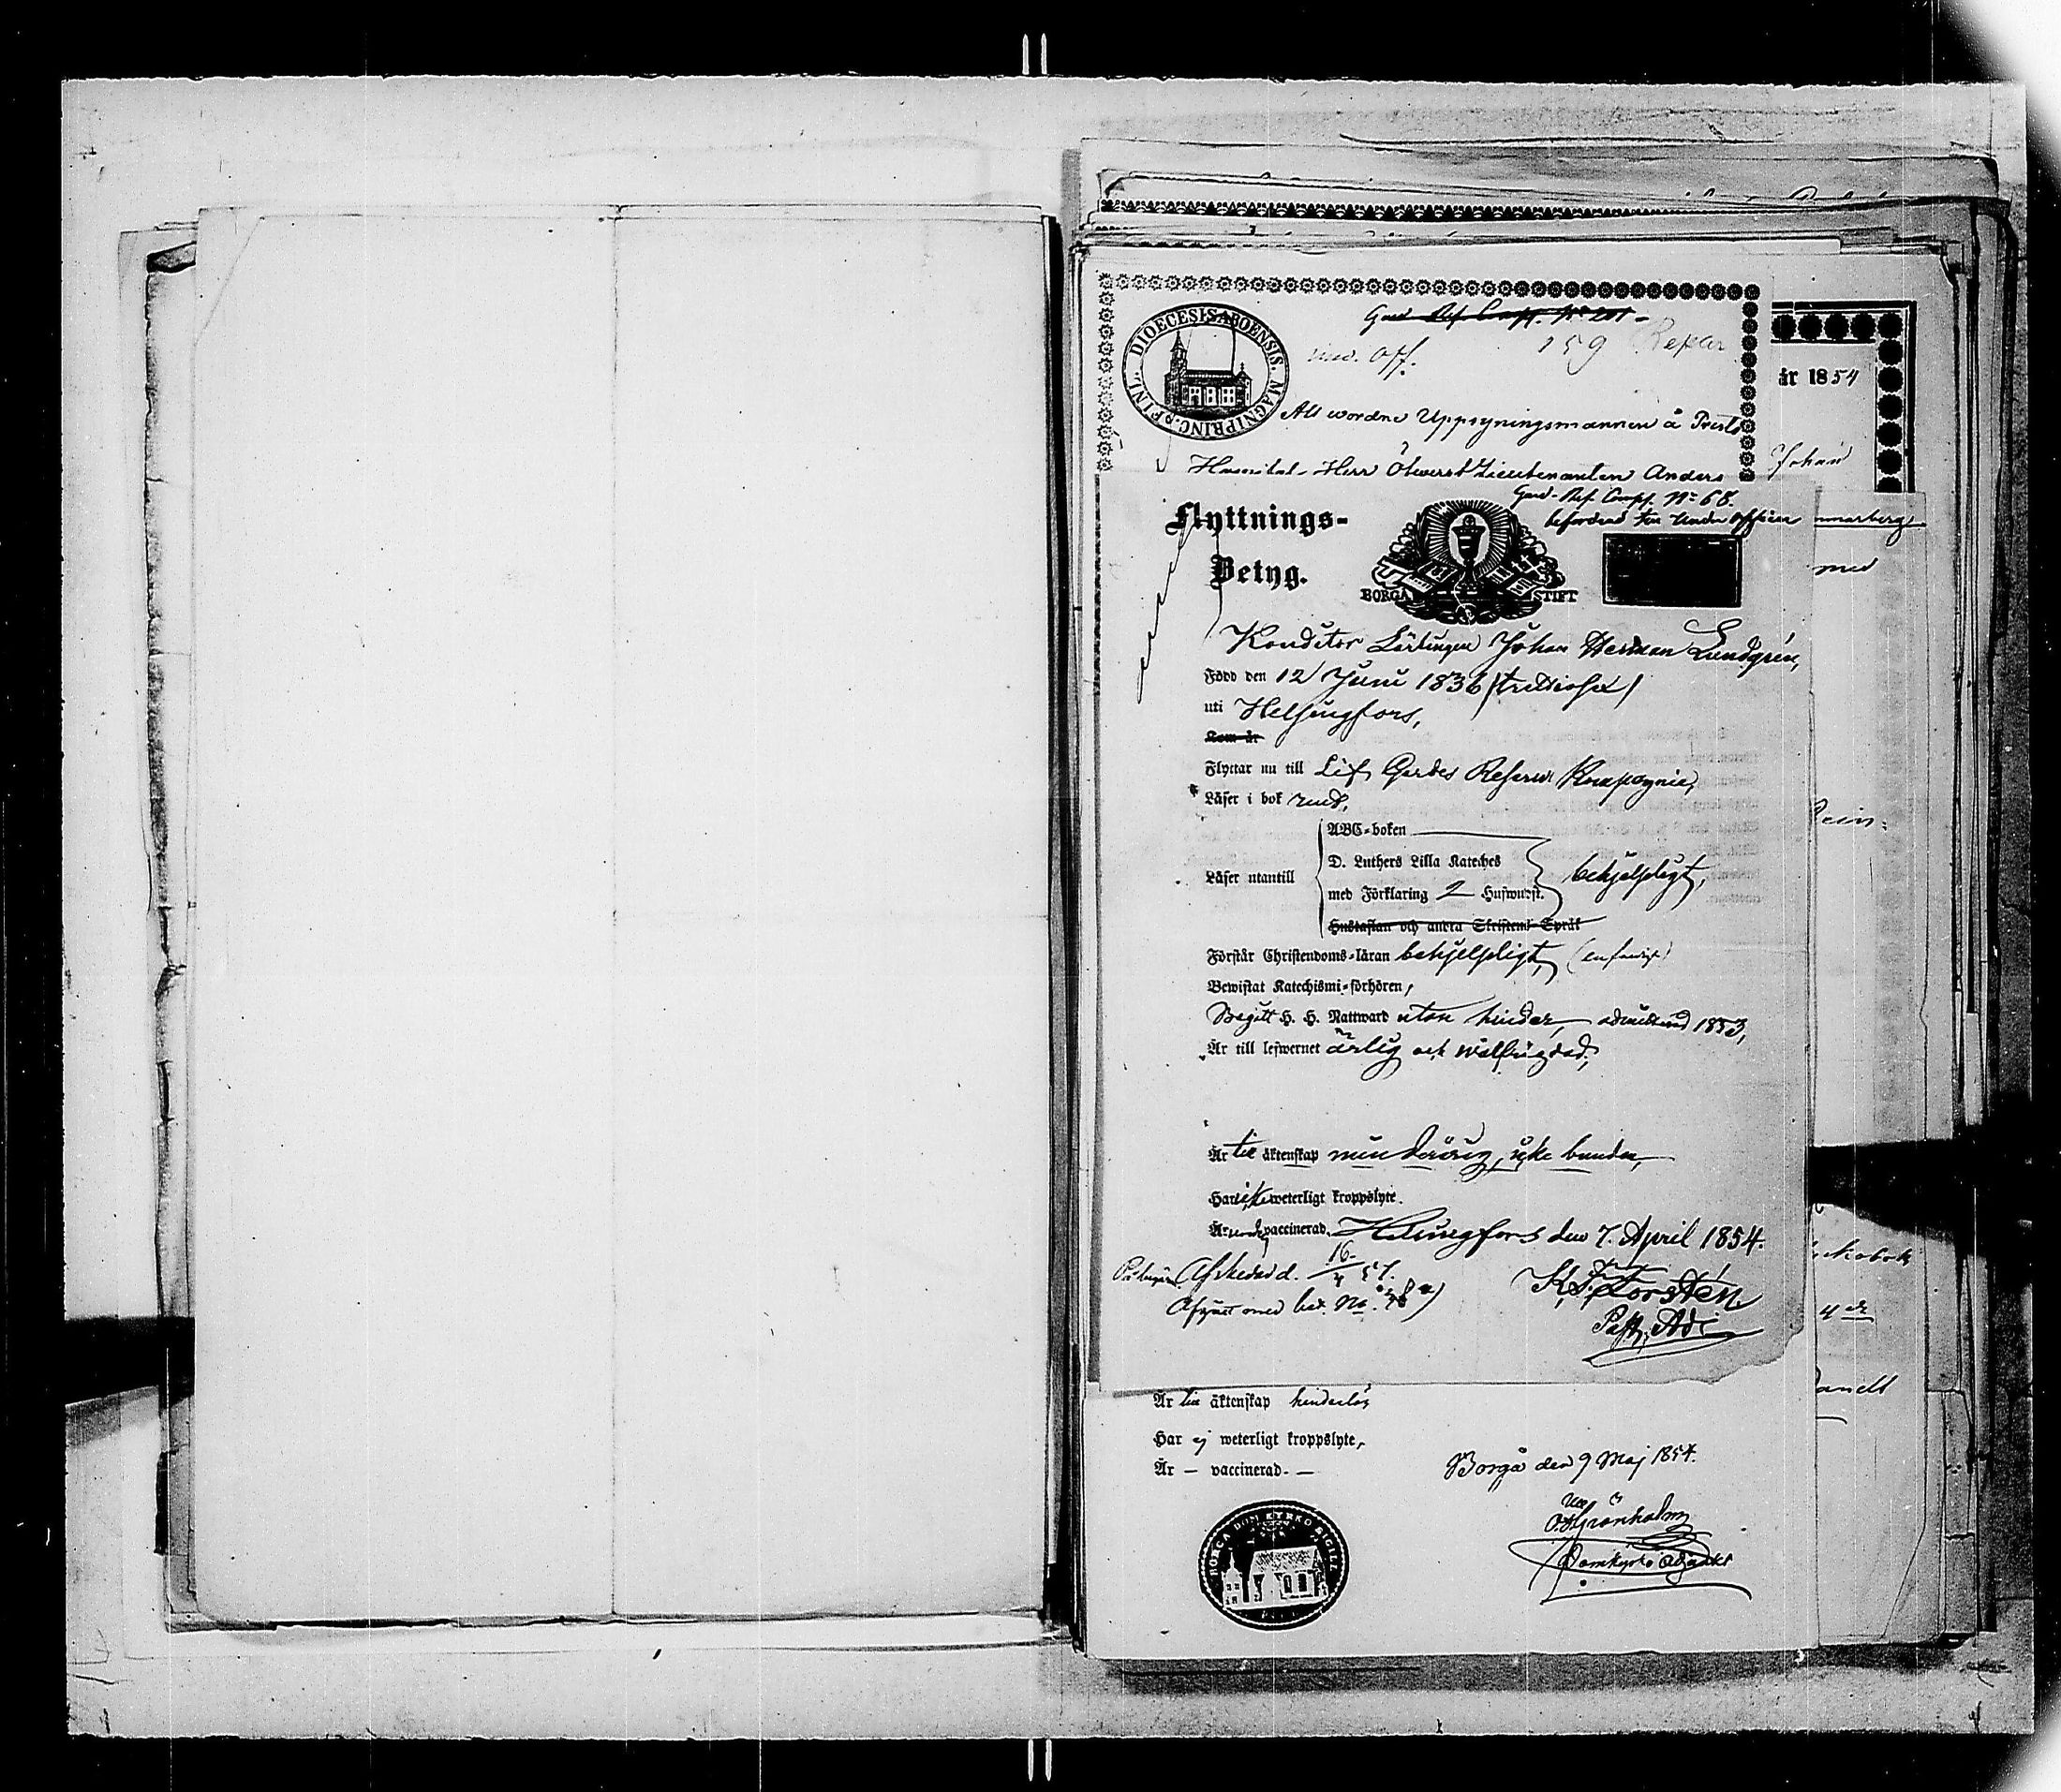 DIOECESIS ABOENSIS. MAGNI PRINC. FINL.
Gard Ref. Comp. No 201-
und. off.
159
Alt wordne Uppsyningsmannen å
Hospital - Herr Öfwerst Lieutenanten Anders
år 1854
Johan
med
Gard-Ref. Comp. No 68.
befordrad till Under officier
Flyttnings-
Betyg.
BORGÅ STIFT
Konditor Lärlingen Johan Herman Lundgrén,
Född den 12 Juni 1836 (trettiosex)
uti Helsingfors,
Kom år
Flyttar nu till Lif Gardes Reserv Kompagnie,
Läser i bok rent,
Läser utantill
ABC-boken
D. Luthers Lilla Kateches
med Förklaring 2 Huswurst.
behjelpligt,
Hustaflan och andra Skriftens-Språk
Förstår Christendoms-läran behjelpligt,
Bewistat Katechismi-förhören,
Begått H. H. Nattward utan hinder, admitterad 1853,
Är till lefwernet ärlig och wälfrägdad,
Är till äktenskap minderårig, icke bunden,
Har icke weterligt kroppslyte.
Är vaccinerad. Helsingfors den 7. April 1854.
Afskedad d. 16/4 57.
K. F. Forstén
Past. Adj
Är till äktenskap hinderlös
Har ej weterligt kroppslyte,
Är — vaccinerad. —
Borgå den 9 Maj 1854.
O. H. Grönholm
Domkyrko Adjunkt
BORGÅ DOMKYRKO SIGILL